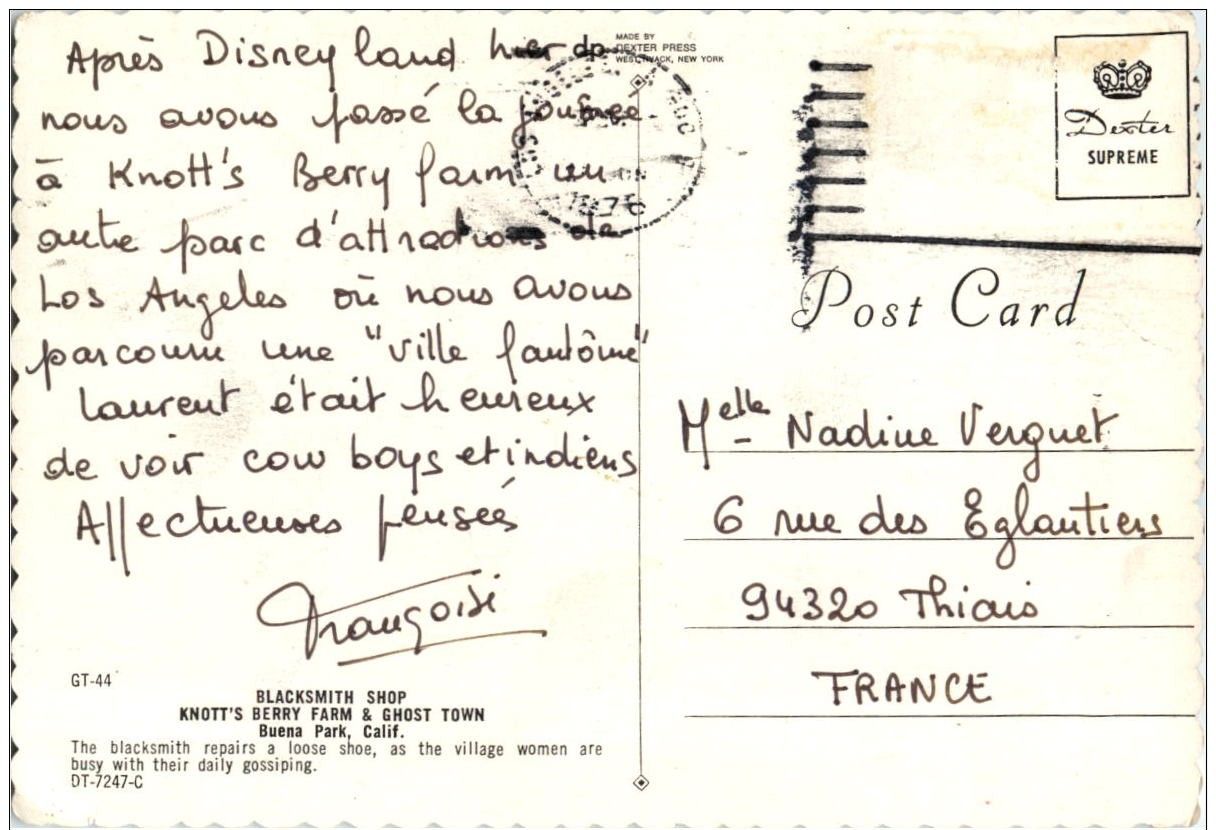 Après Disneyland hier
nous avons passé la journée
à Knott's Berry farm un
autre parc d'attractions de
Los Angeles où nous avons
parcouru une "ville fantôme"
Laurent était heureux
de voir cow boys et indiens
Affectueuses pensées
Françoise
GT-44
BLACKSMITH SHOP
KNOTT'S BERRY FARM & GHOST TOWN
Buena Park, Calif.
The blacksmith repairs a loose shoe, as the village women are
busy with their daily gossiping.
DT-7247-C
MADE BY
DEXTER PRESS
WEST NYACK, NEW YORK
Dexter
SUPREME
Post Card
Melle Nadine Verguet
6 rue des Eglantiers
94320 Thiais
FRANCE